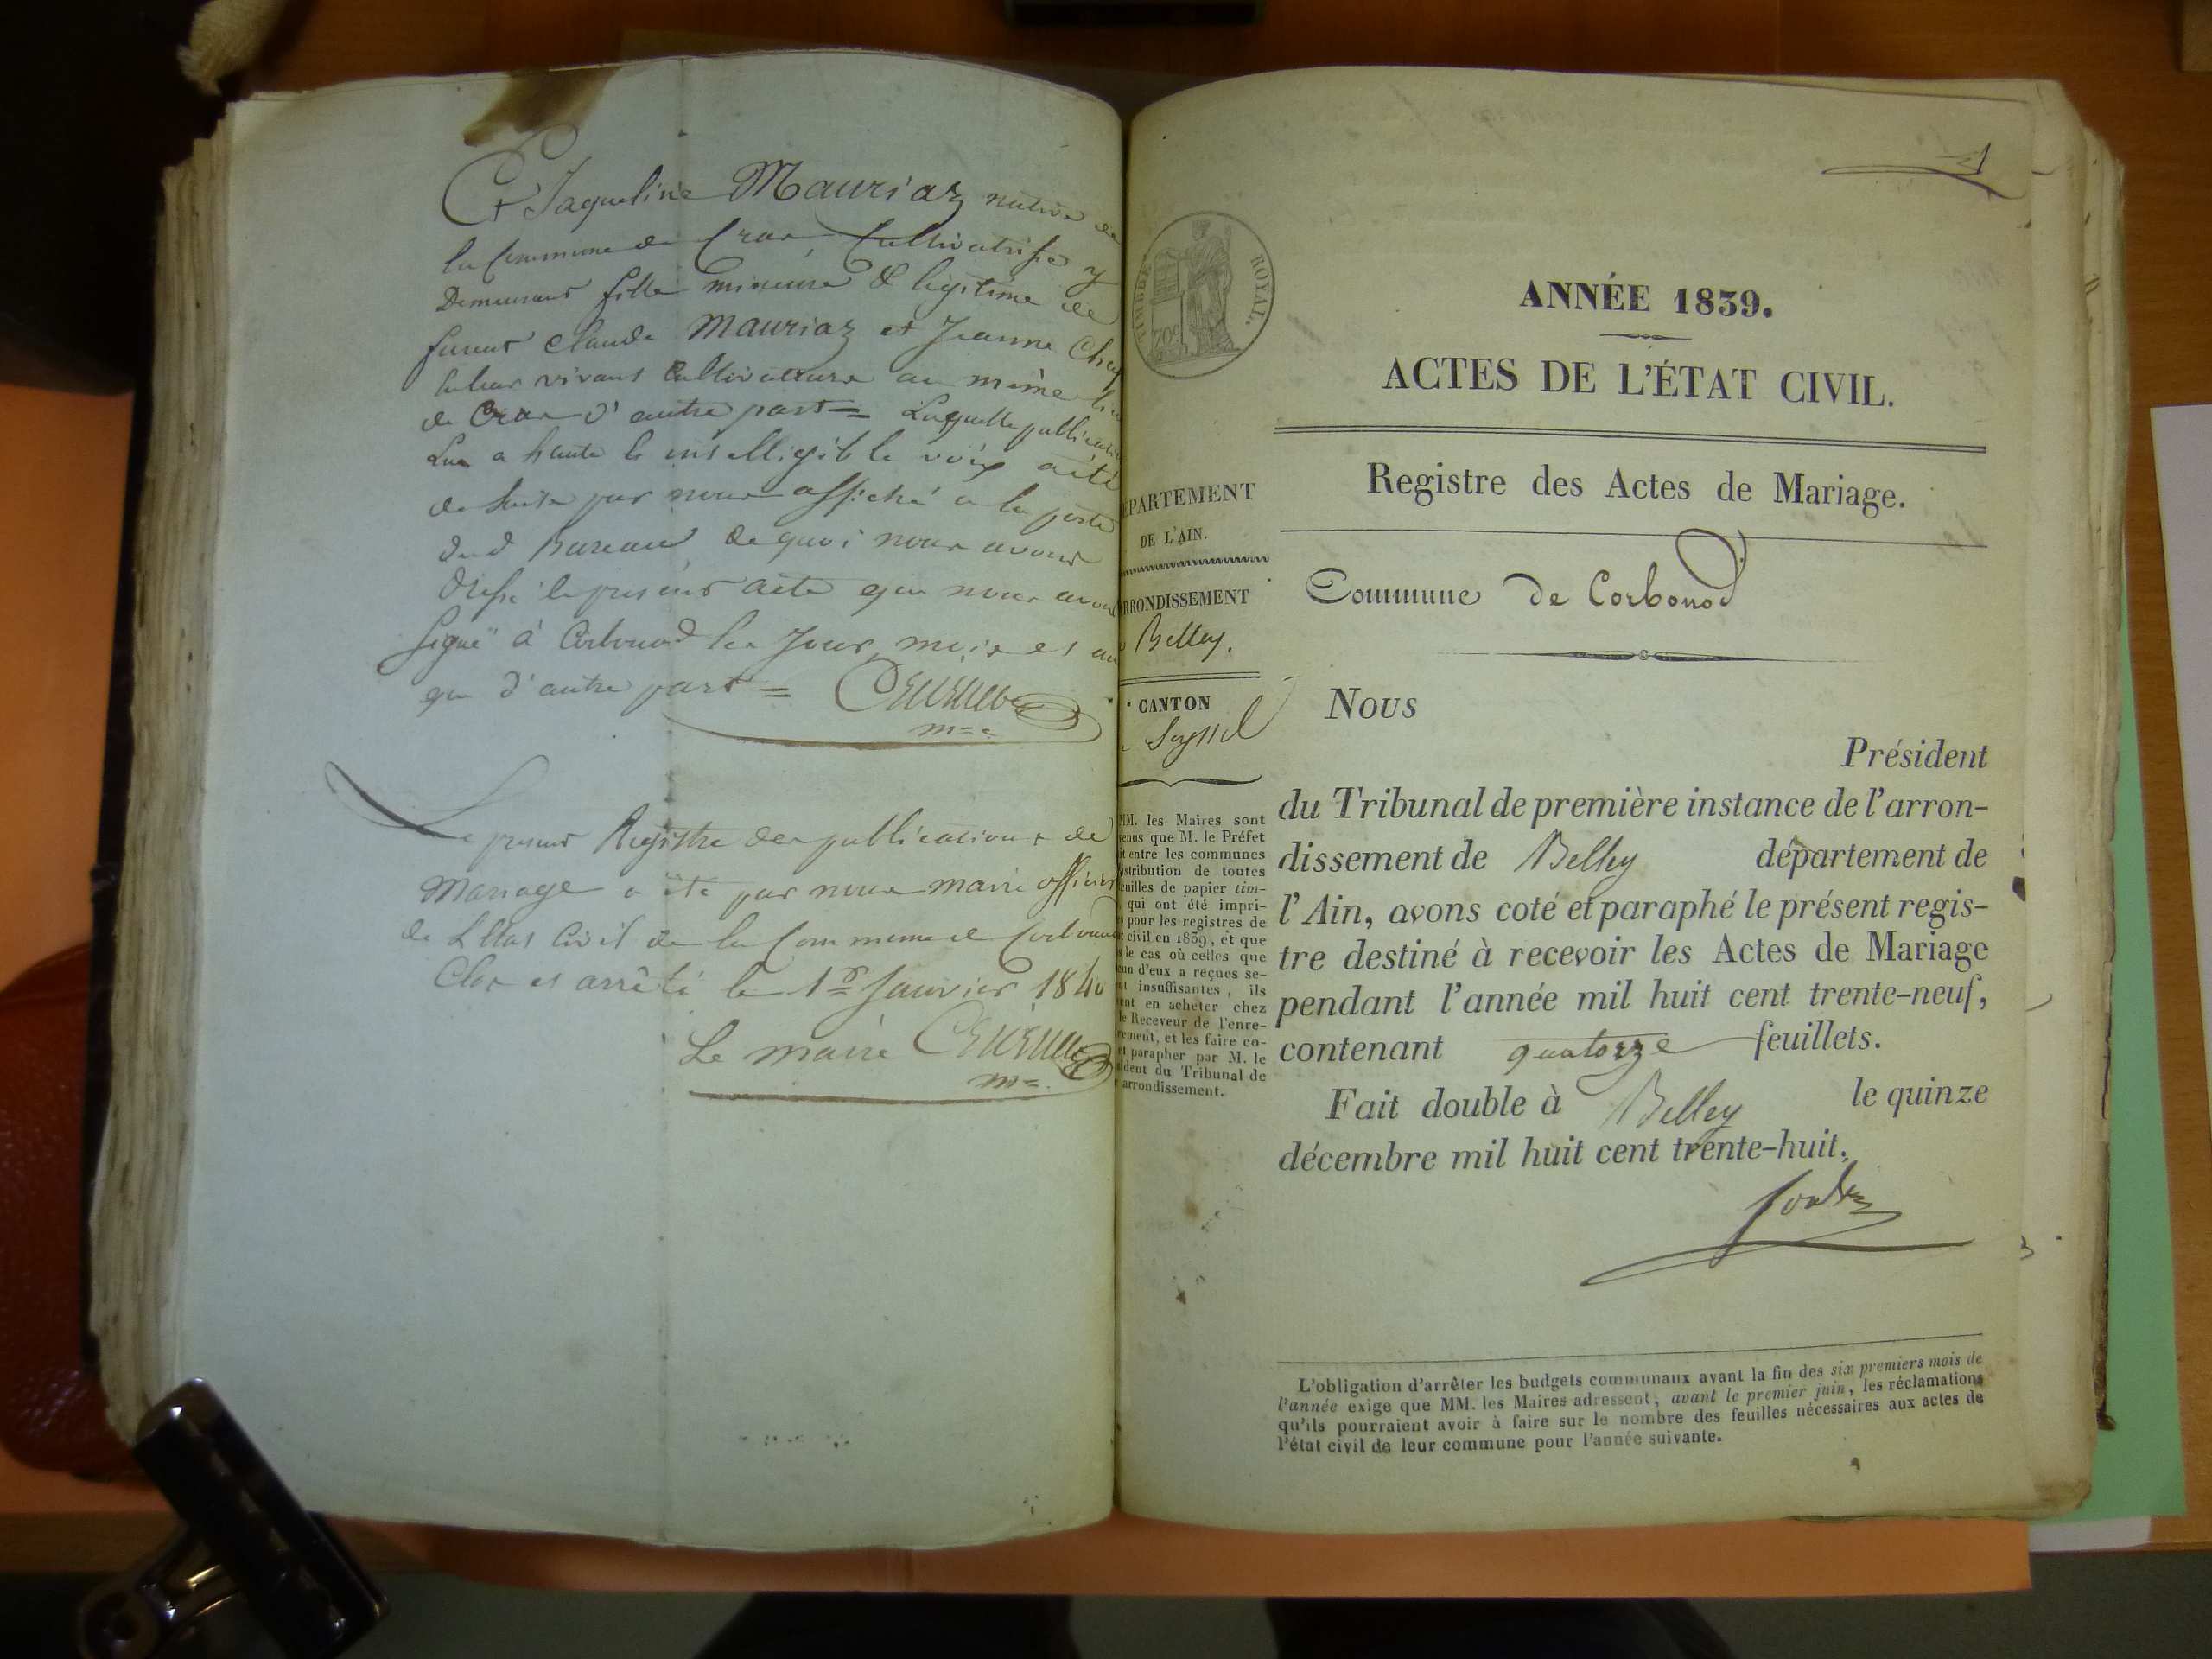 Et Jaqueline Mauriaz native de
la Commune de Cultivatrice y
Demeurant fille mineure & légitime de
furent Claude Mauriaz et Jeanne
vivant Cultivateurs au même
de d'autre part = Laquelle
Lue a haute & intelligible voix
de suite par nous affiché a la porte
dud Bureau de quoi nous avons
le présent acte que nous avons
signé à Corbonod les Jour, mois et an
que d'autre part =
Le present Registre des publications de
Mariage a été par nous maire officier
de L'Etat Civil de la Commune de Corbonod
Clos et arrêté le 1er Janvier 1840
Le maire
1
TIMBRE ROYAL.
70c
ANNÉE 1839.
ACTES DE L'ÉTAT CIVIL.
Registre des Actes de Mariage.
ÉPARTEMENT
DE L'AIN.
RRONDISSEMENT
Belley.
CANTON
Seyssel
MM. les Maires sont
enus que M. le Préfet
it entre les communes
istribution de toutes
euilles de papier tim-
qui ont été impri-
pour les registres de
civil en 1839, et que
le cas où celles que
un d'eux a reçues se-
nt insuffisantes, ils
ent en acheter chez
le Receveur de l'enre-
rement, et les faire co-
et parapher par M. le
sident du Tribunal de
arrondissement.
Commune de Corbonod
Nous
Président
du Tribunal de première instance de l'arron-
dissement de Belley département de
l'Ain, avons coté et paraphé le présent regis-
tre destiné à recevoir les Actes de Mariage
pendant l'année mil huit cent trente-neuf,
contenant quatorze feuillets.
Fait double à Belley le quinze
décembre mil huit cent trente-huit.
L'obligation d'arrêter les budgets communaux avant la fin des six premiers mois de
l'année exige que MM. les Maires adressent, avant le premier juin, les réclamations
qu'ils pourraient avoir à faire sur le nombre des feuilles nécessaires aux actes de
l'état civil de leur commune pour l'année suivante.